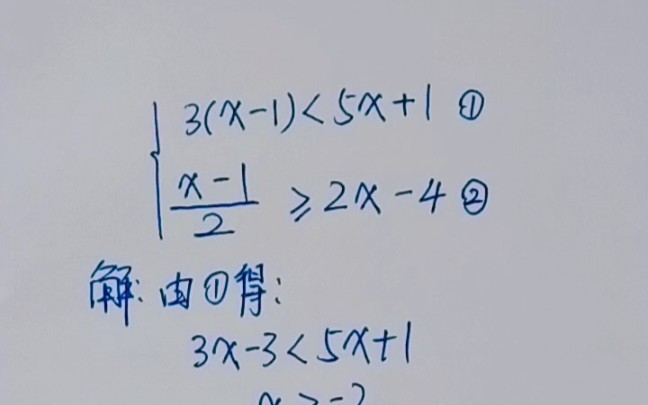 3(x-1)<5x+1 ①
x-1
2
≥2x-4 ②
解: 由①得:
3x-3<5x+1
x>-2